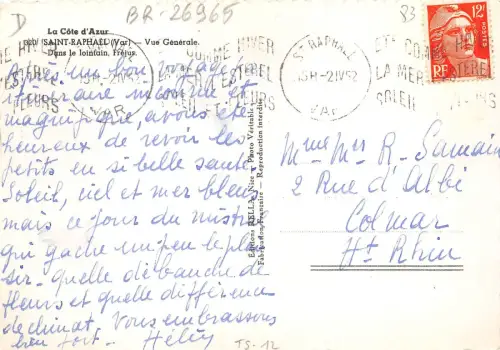 D
BR-26965
83
La Côte d'Azur
SAINT-RAPHAEL (Var) — Vue Générale.
Dans le lointain, Fréjus.
ST RAPHAEL
15H -2 IV 52
VAR
ETE COMME HIVER
LA MER L'ESTEREL
SOLEIL FLEURS
12F
POSTES
RF
Après un bon voyage
itinéraire inconnu et
magnifique, avons été
heureux de revoir les
petits en si belle santé
Soleil, ciel et mer bleus
mais ce jour du mistral
qui gache un peu le plai
sir - quelle débauche de
fleurs et quelle différence
de climat. Vous embrassons
bien fort. Hélèy
Editions RELLA, Nice - Photo Véritable
Fabrication Française - Reproduction interdite
Mme Mr R. Samain
2 Rue d'Albi
Colmar
Ht Rhin
TS-12